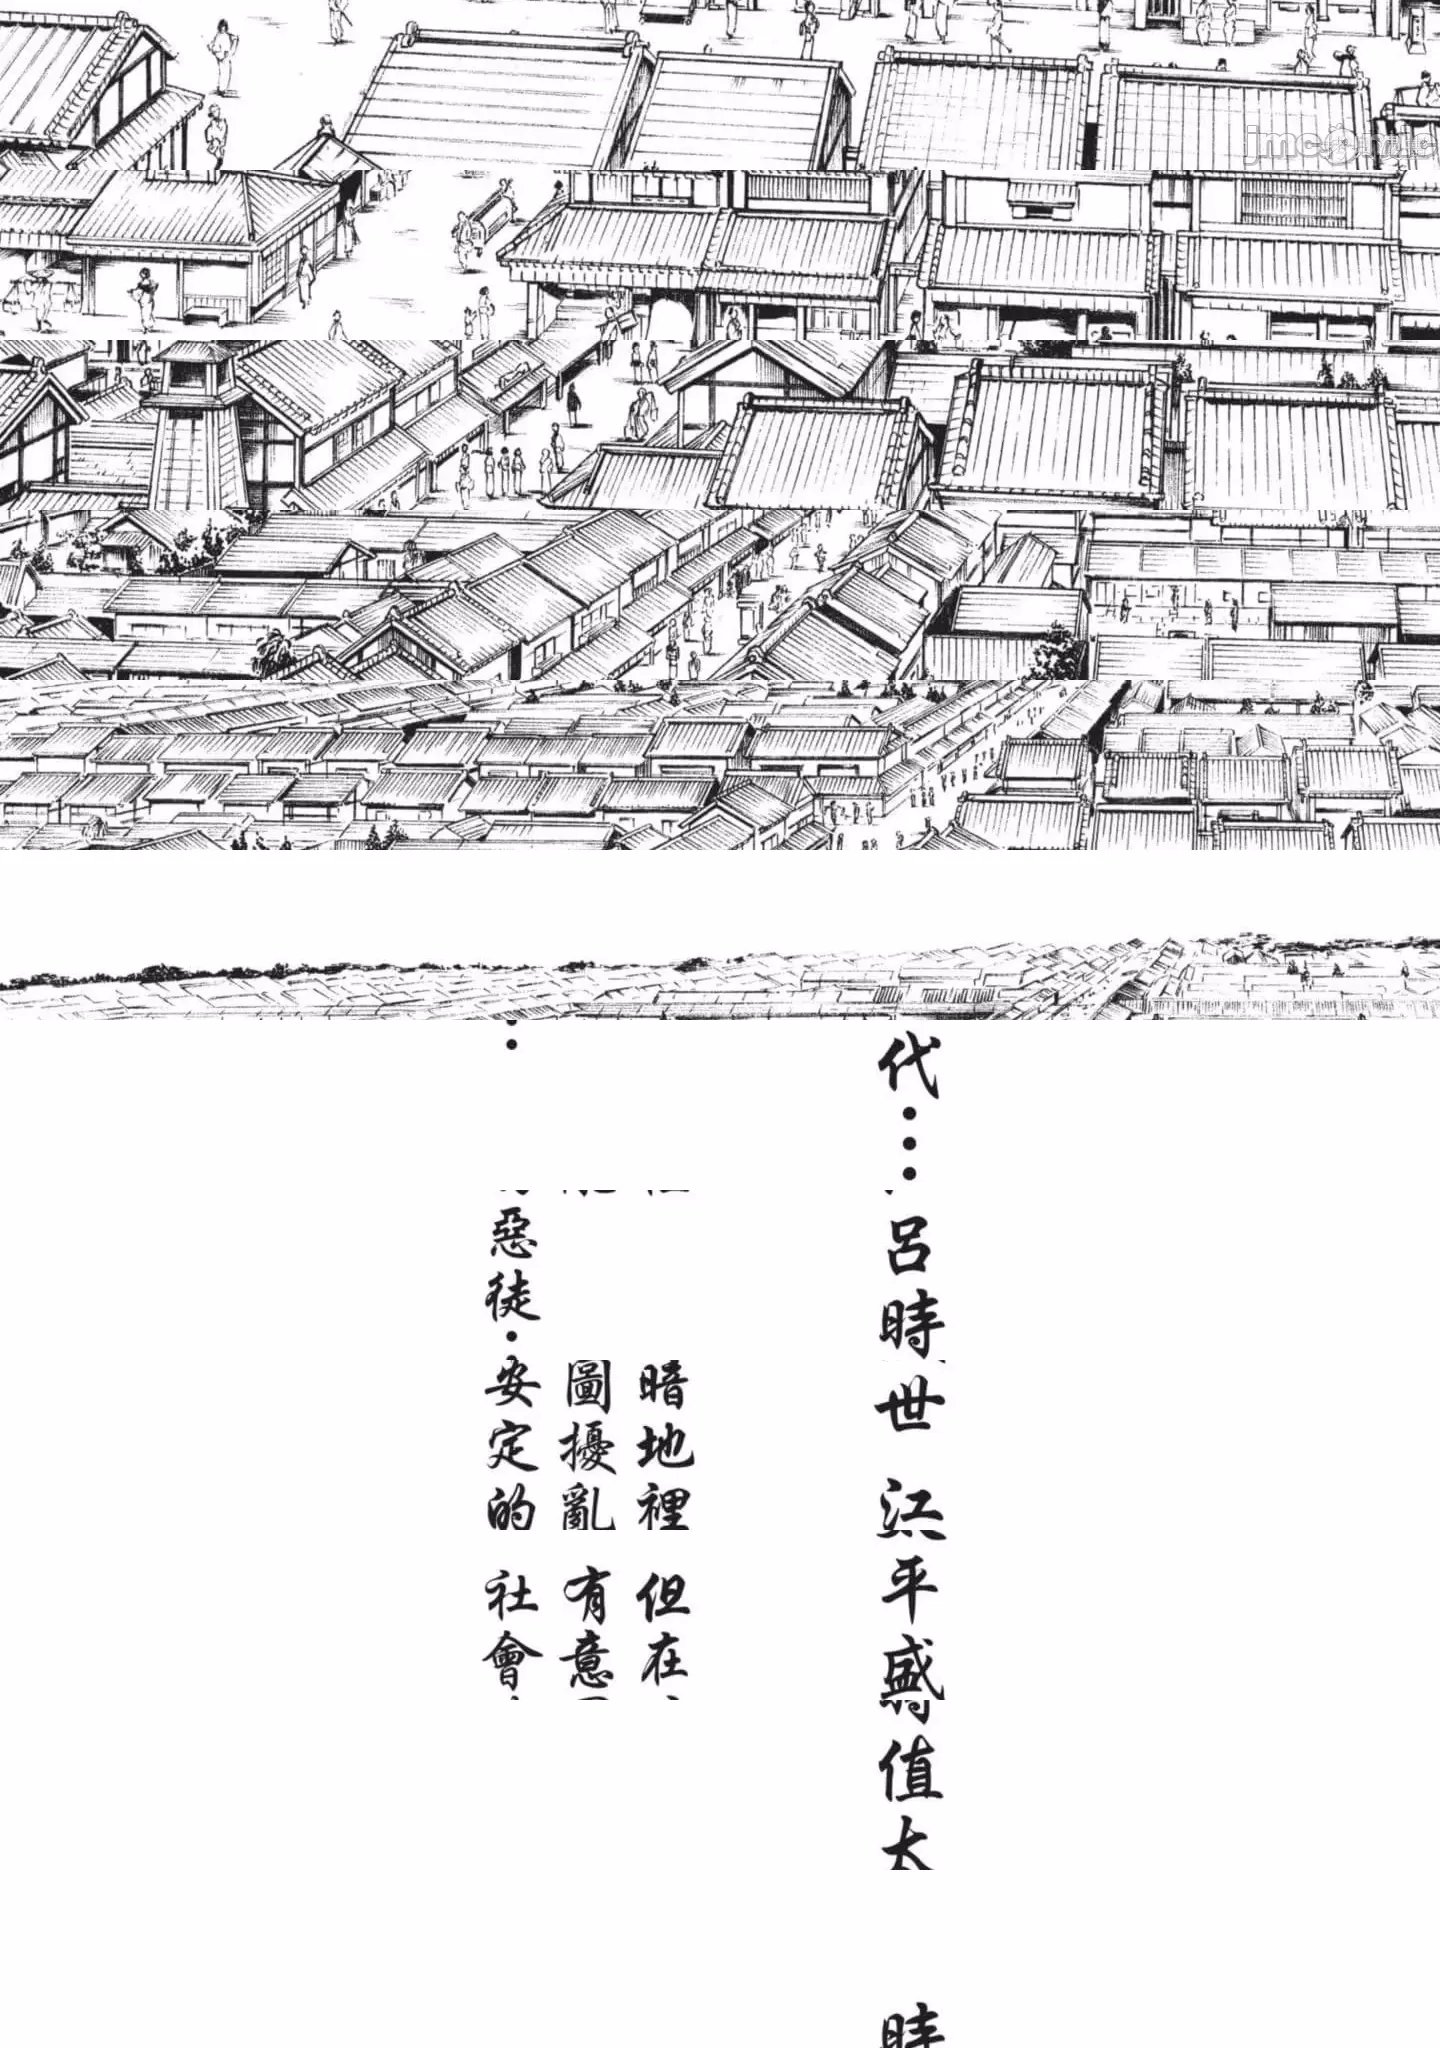 代…呂時世 江平盛值太 時
暗地裡但在
圖擾亂有意
惡徒・安定的社會
jmcomic